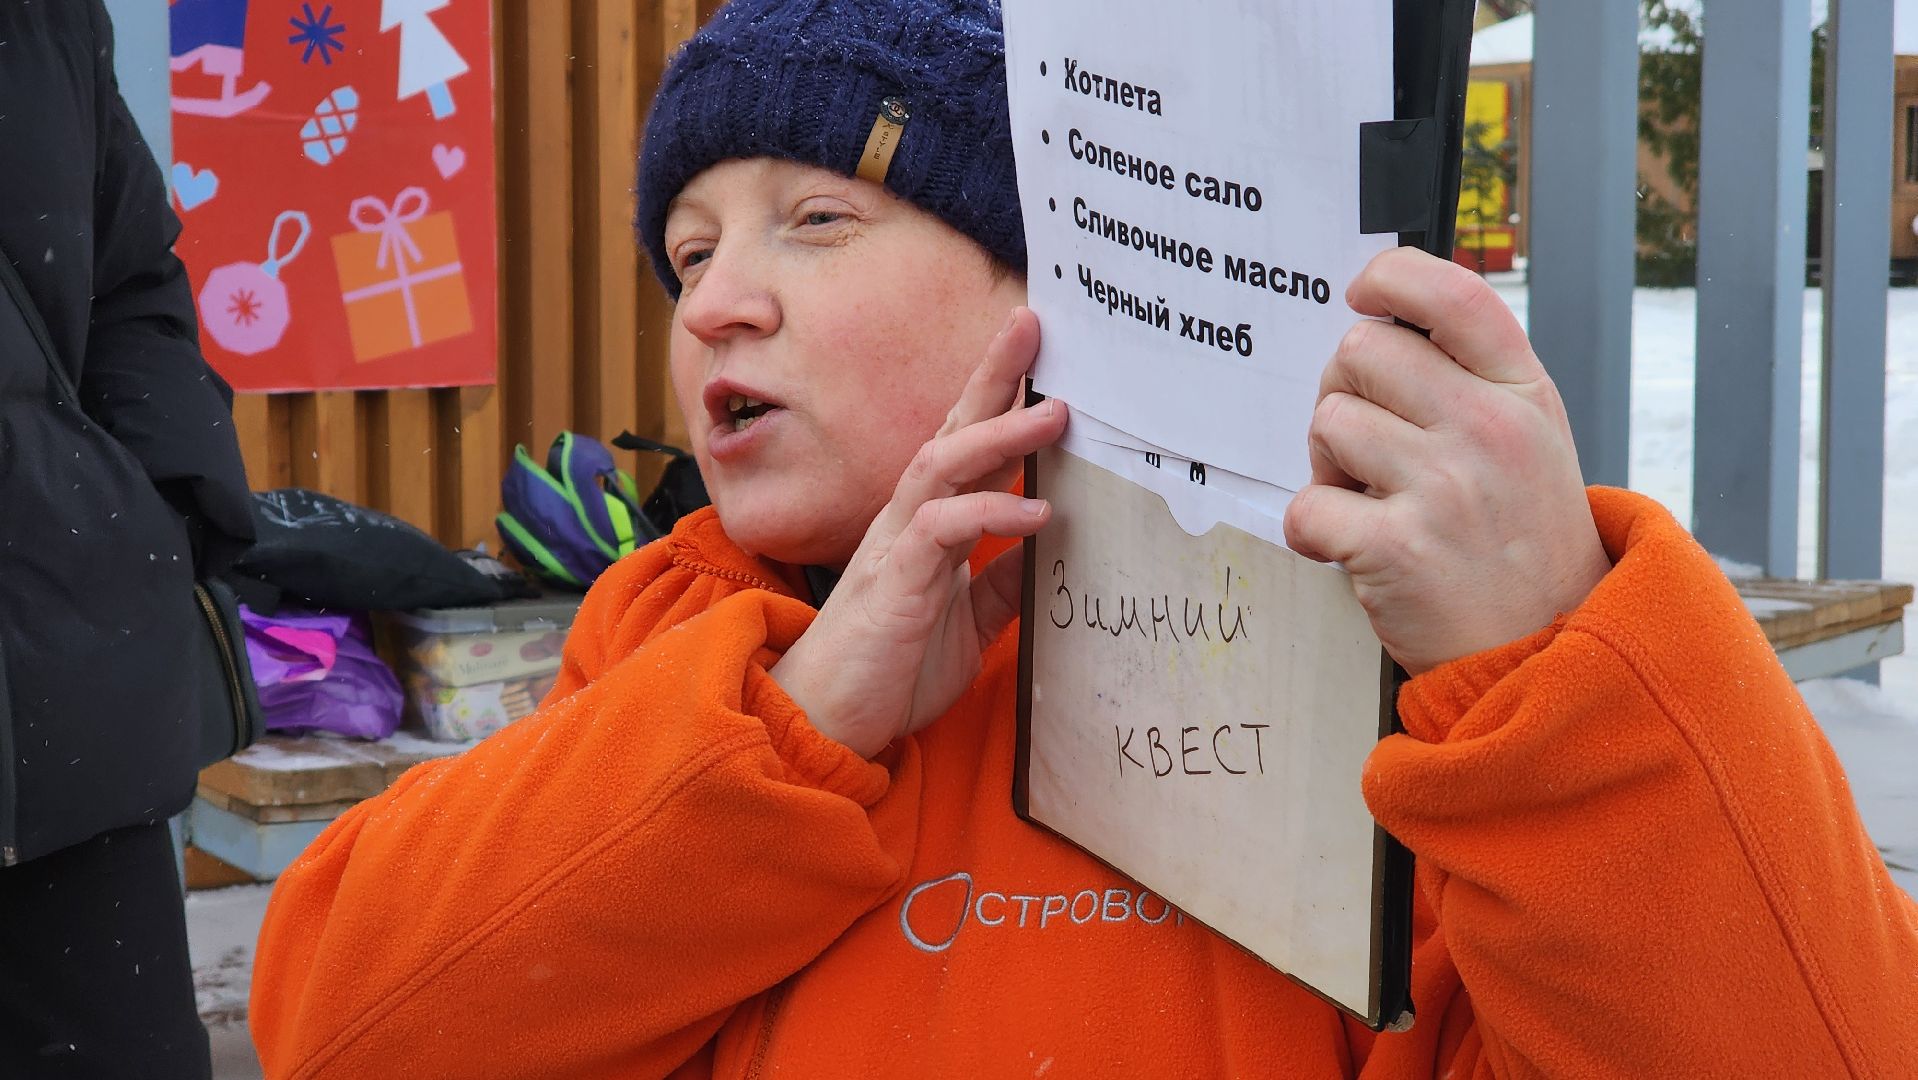 • Котлета
• Соленое сало
• Сливочное масло
• Черный хлеб
Зимний
КВЕСТ
ОСТРОВО